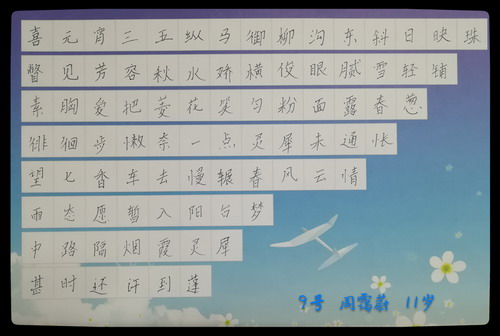 喜元宵三五纵马御柳沟东斜日映珠
瞥见芳容秋水娇横俊眼腻雪轻铺
素胸爱把菱花笑匀粉面露春葱
徘徊步懒奈一点灵犀未通怅
望七香车去慢辗春风云情
雨态愿暂入阳台梦
中路隔烟霞灵犀
甚时还许到蓬
9号 周霭蔚 11岁